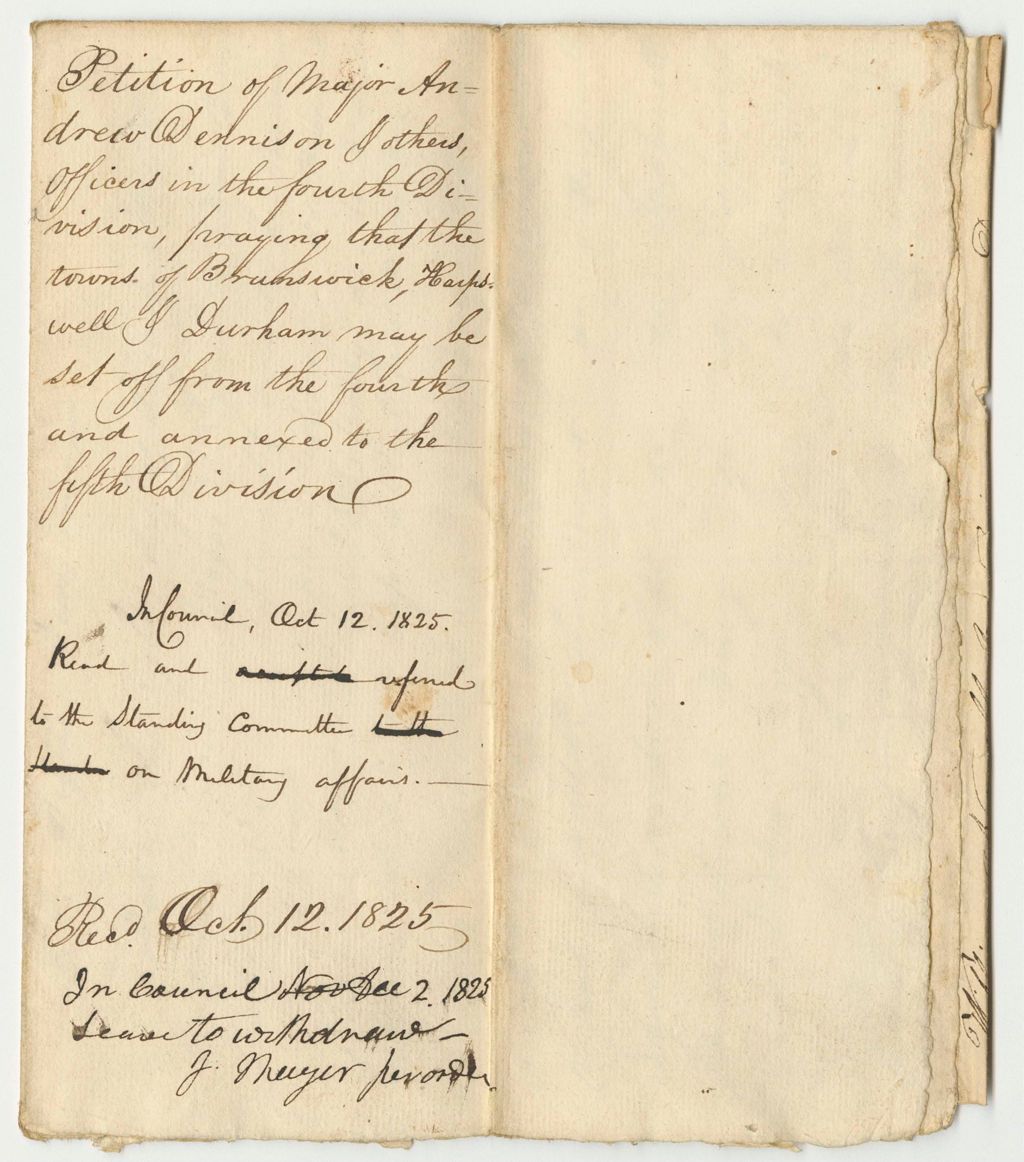 Petition of Major An=
drew Dennison & others,
Officers in the fourth Di=
vision, praying that the
towns of Brunswick, Harps=
well & Durham may be
set off from the fourth
and annexed to the
fifth Division
In Council, Oct 12. 1825.
Read and referred
to the Standing Committee to the
on Military affairs. —
Recd. Oct. 12. 1825
In Council Nov Dec 2. 1825
Leave to withdraw —
J. per order